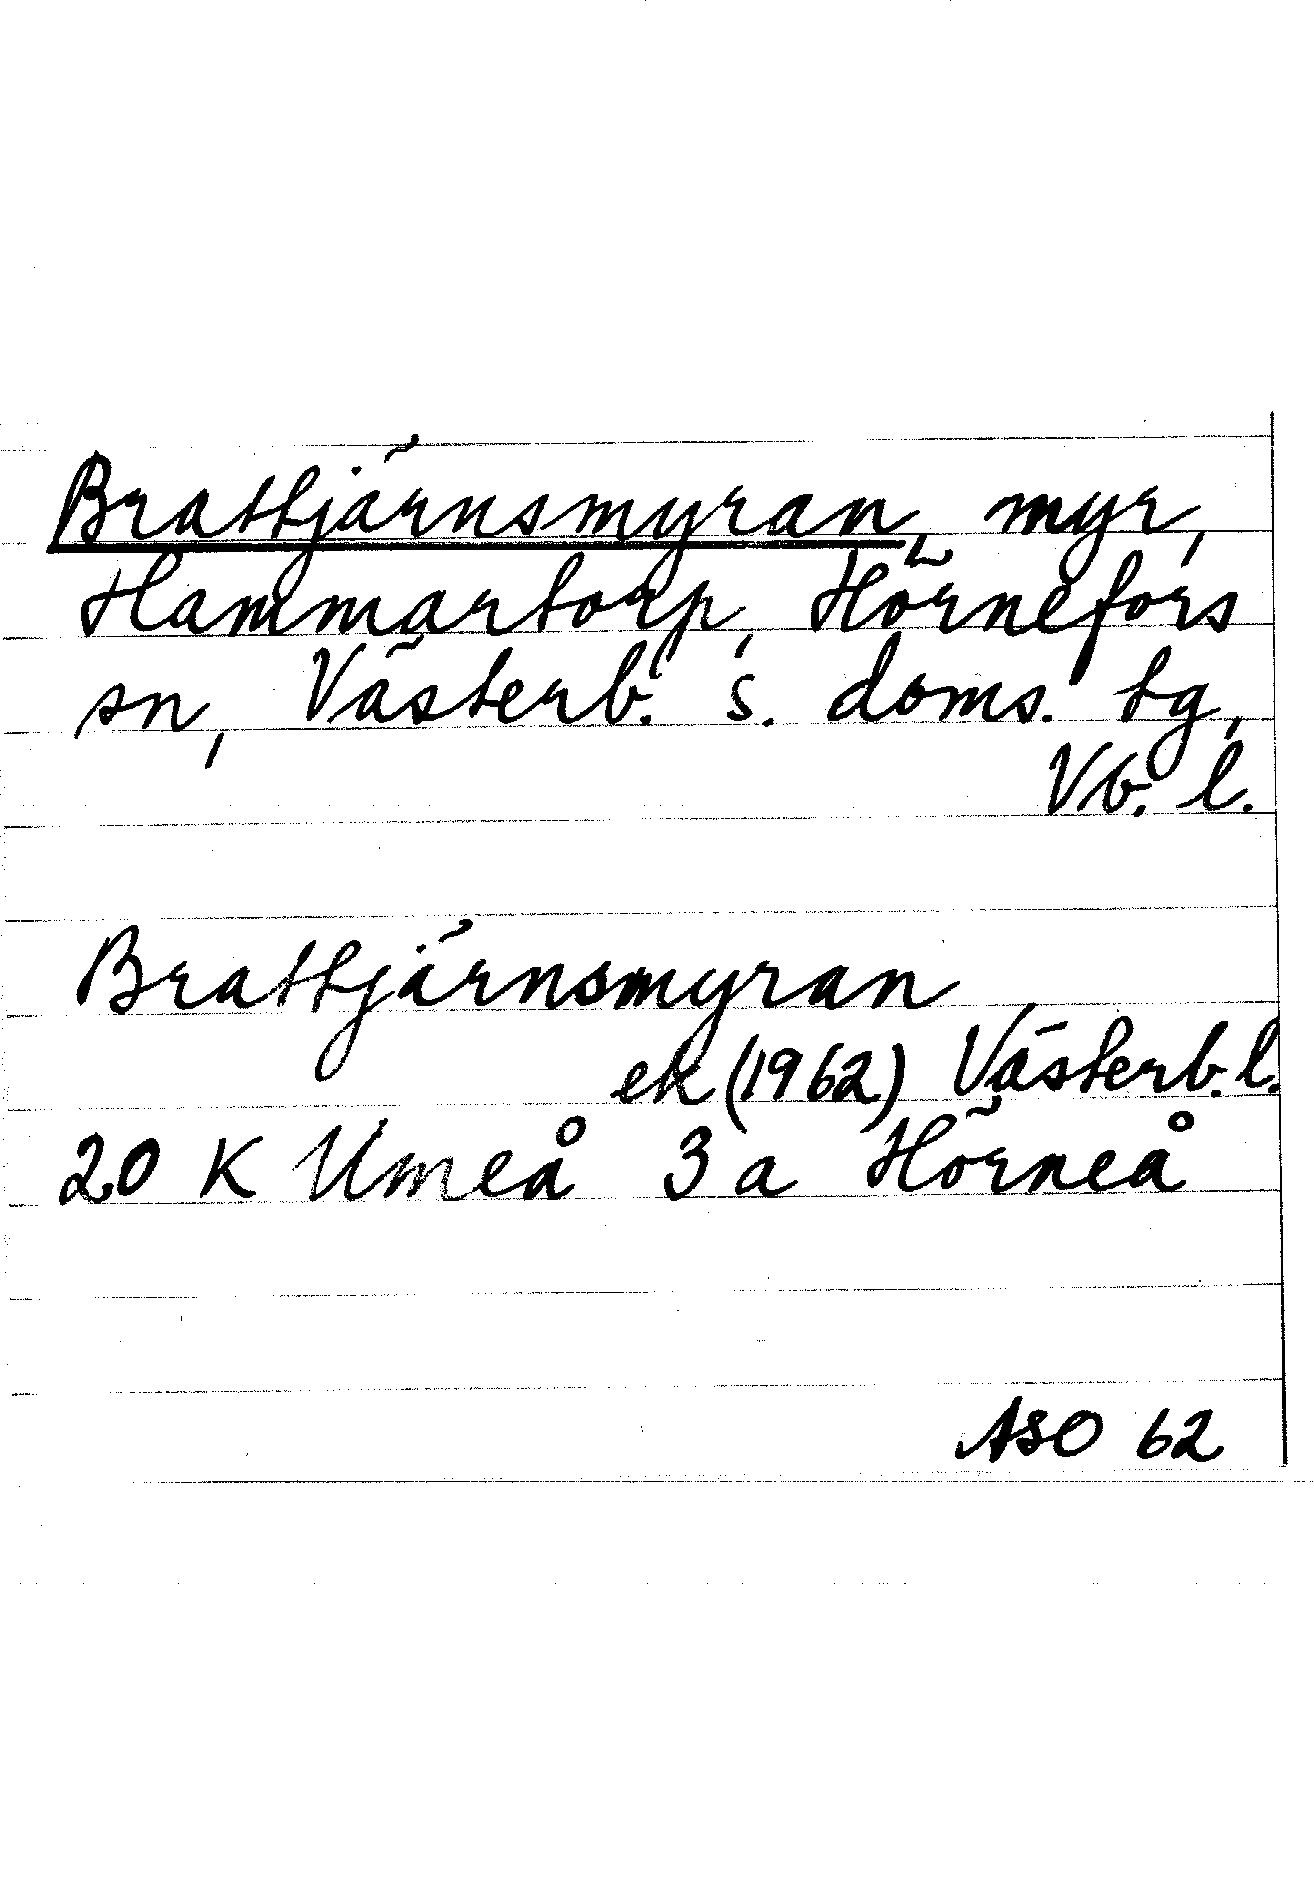 Brattjärnsmyran, myr,
Hammartorp, Hörnefors
sn, Västerb. s. doms. tg,
Vb. l.
Brattjärnsmyran
ek (1962) Västerb. l.
20 K Umeå 3 a Hörneå
ASO 62